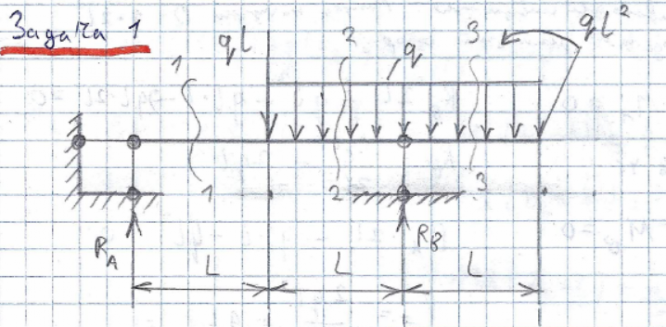 Задача 1
qL
1
2
q
3
qL²
1
2
3
R_A
R_B
L
L
L